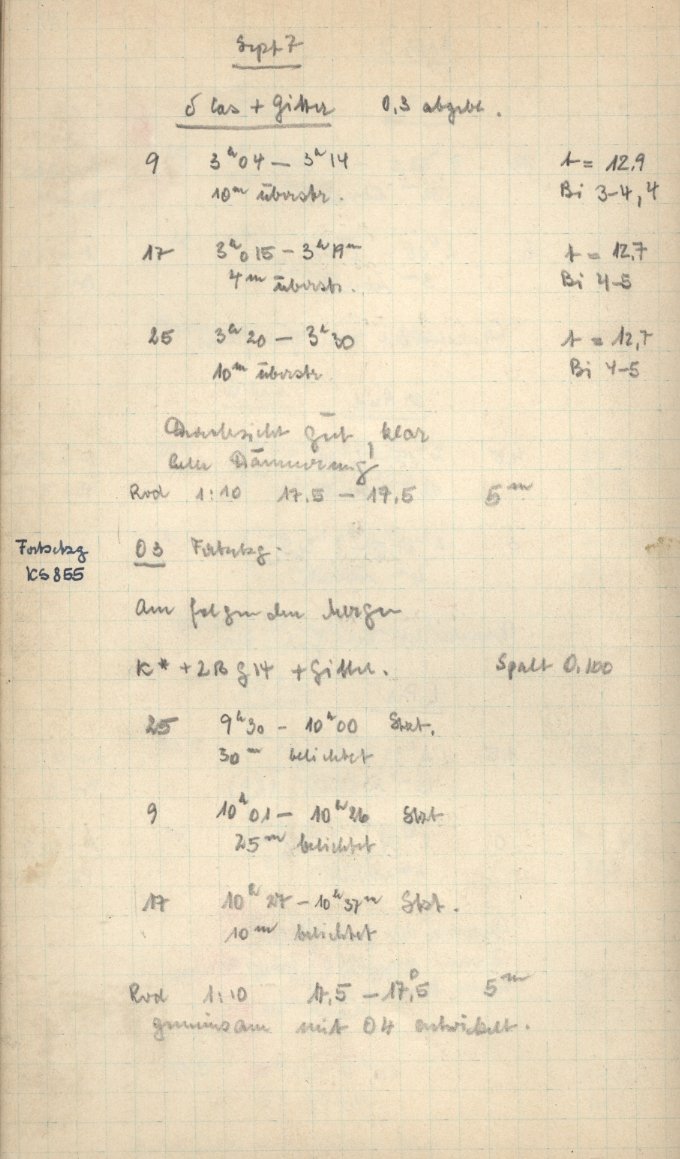 Sept 7
δ Cas + Gitter 0,3 abgebl.
9 3ʰ04 – 3ʰ14 t = 12,9
10ᵐ überstr. Bi 3-4, 4
17 3ʰ015 – 3ʰ19ᵐ t = 12,7
4ᵐ überstr. Bi 4-5
25 3ʰ20 – 3ʰ30 t = 12,7
10ᵐ überstr Bi 4-5
Durchsicht gut, klar
helle Dämmerung
Rod 1:10 17,5 – 17,5 5ᵐ
Fortsetzg 03 Fortsetzg.
KS 855
Am folgenden Morgen
K* + 2B G 14 + Gitter. Spalt 0,100
25 9ʰ30 – 10ʰ00 Stzt.
30ᵐ belichtet
9 10ʰ01 – 10ʰ26 Stzt
25ᵐ belichtet
17 10ʰ27 – 10ʰ37ᵐ Stzt.
10ᵐ belichtet
Rod 1:10 17,5 – 17,°5 5ᵐ
gemeinsam mit 04 entwickelt.